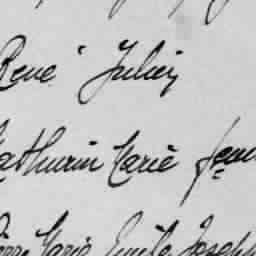 René Julien
Mathurin Marie fem
Pierre Marie Emile Joseph